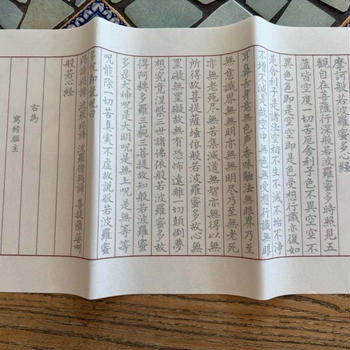 摩訶般若波羅蜜多心経
観自在菩薩行深般若波羅蜜多時照見五
蘊皆空度一切苦厄舎利子色不異空空不
異色色即是空空即是色受想行識亦復如
是舎利子是諸法空相不生不滅不垢不浄
不増不減是故空中無色無受想行識無眼
耳鼻舌身意無色声香味触法無眼界乃至
無意識界無無明亦無無明尽乃至無老死
亦無老死尽無苦集滅道無智亦無得以無
所得故菩提薩埵依般若波羅蜜多故心無
罣礙無罣礙故無有恐怖遠離一切顛倒夢
想究竟涅槃三世諸佛依般若波羅蜜多故
得阿耨多羅三藐三菩提故知般若波羅蜜
多是大神呪是大明呪是無上呪是無等等
呪能除一切苦真実不虚故説般若波羅蜜
多呪即説呪曰
羯諦羯諦 波羅羯諦 波羅僧羯諦 菩提薩婆訶
般若心経
右為
寫経願主